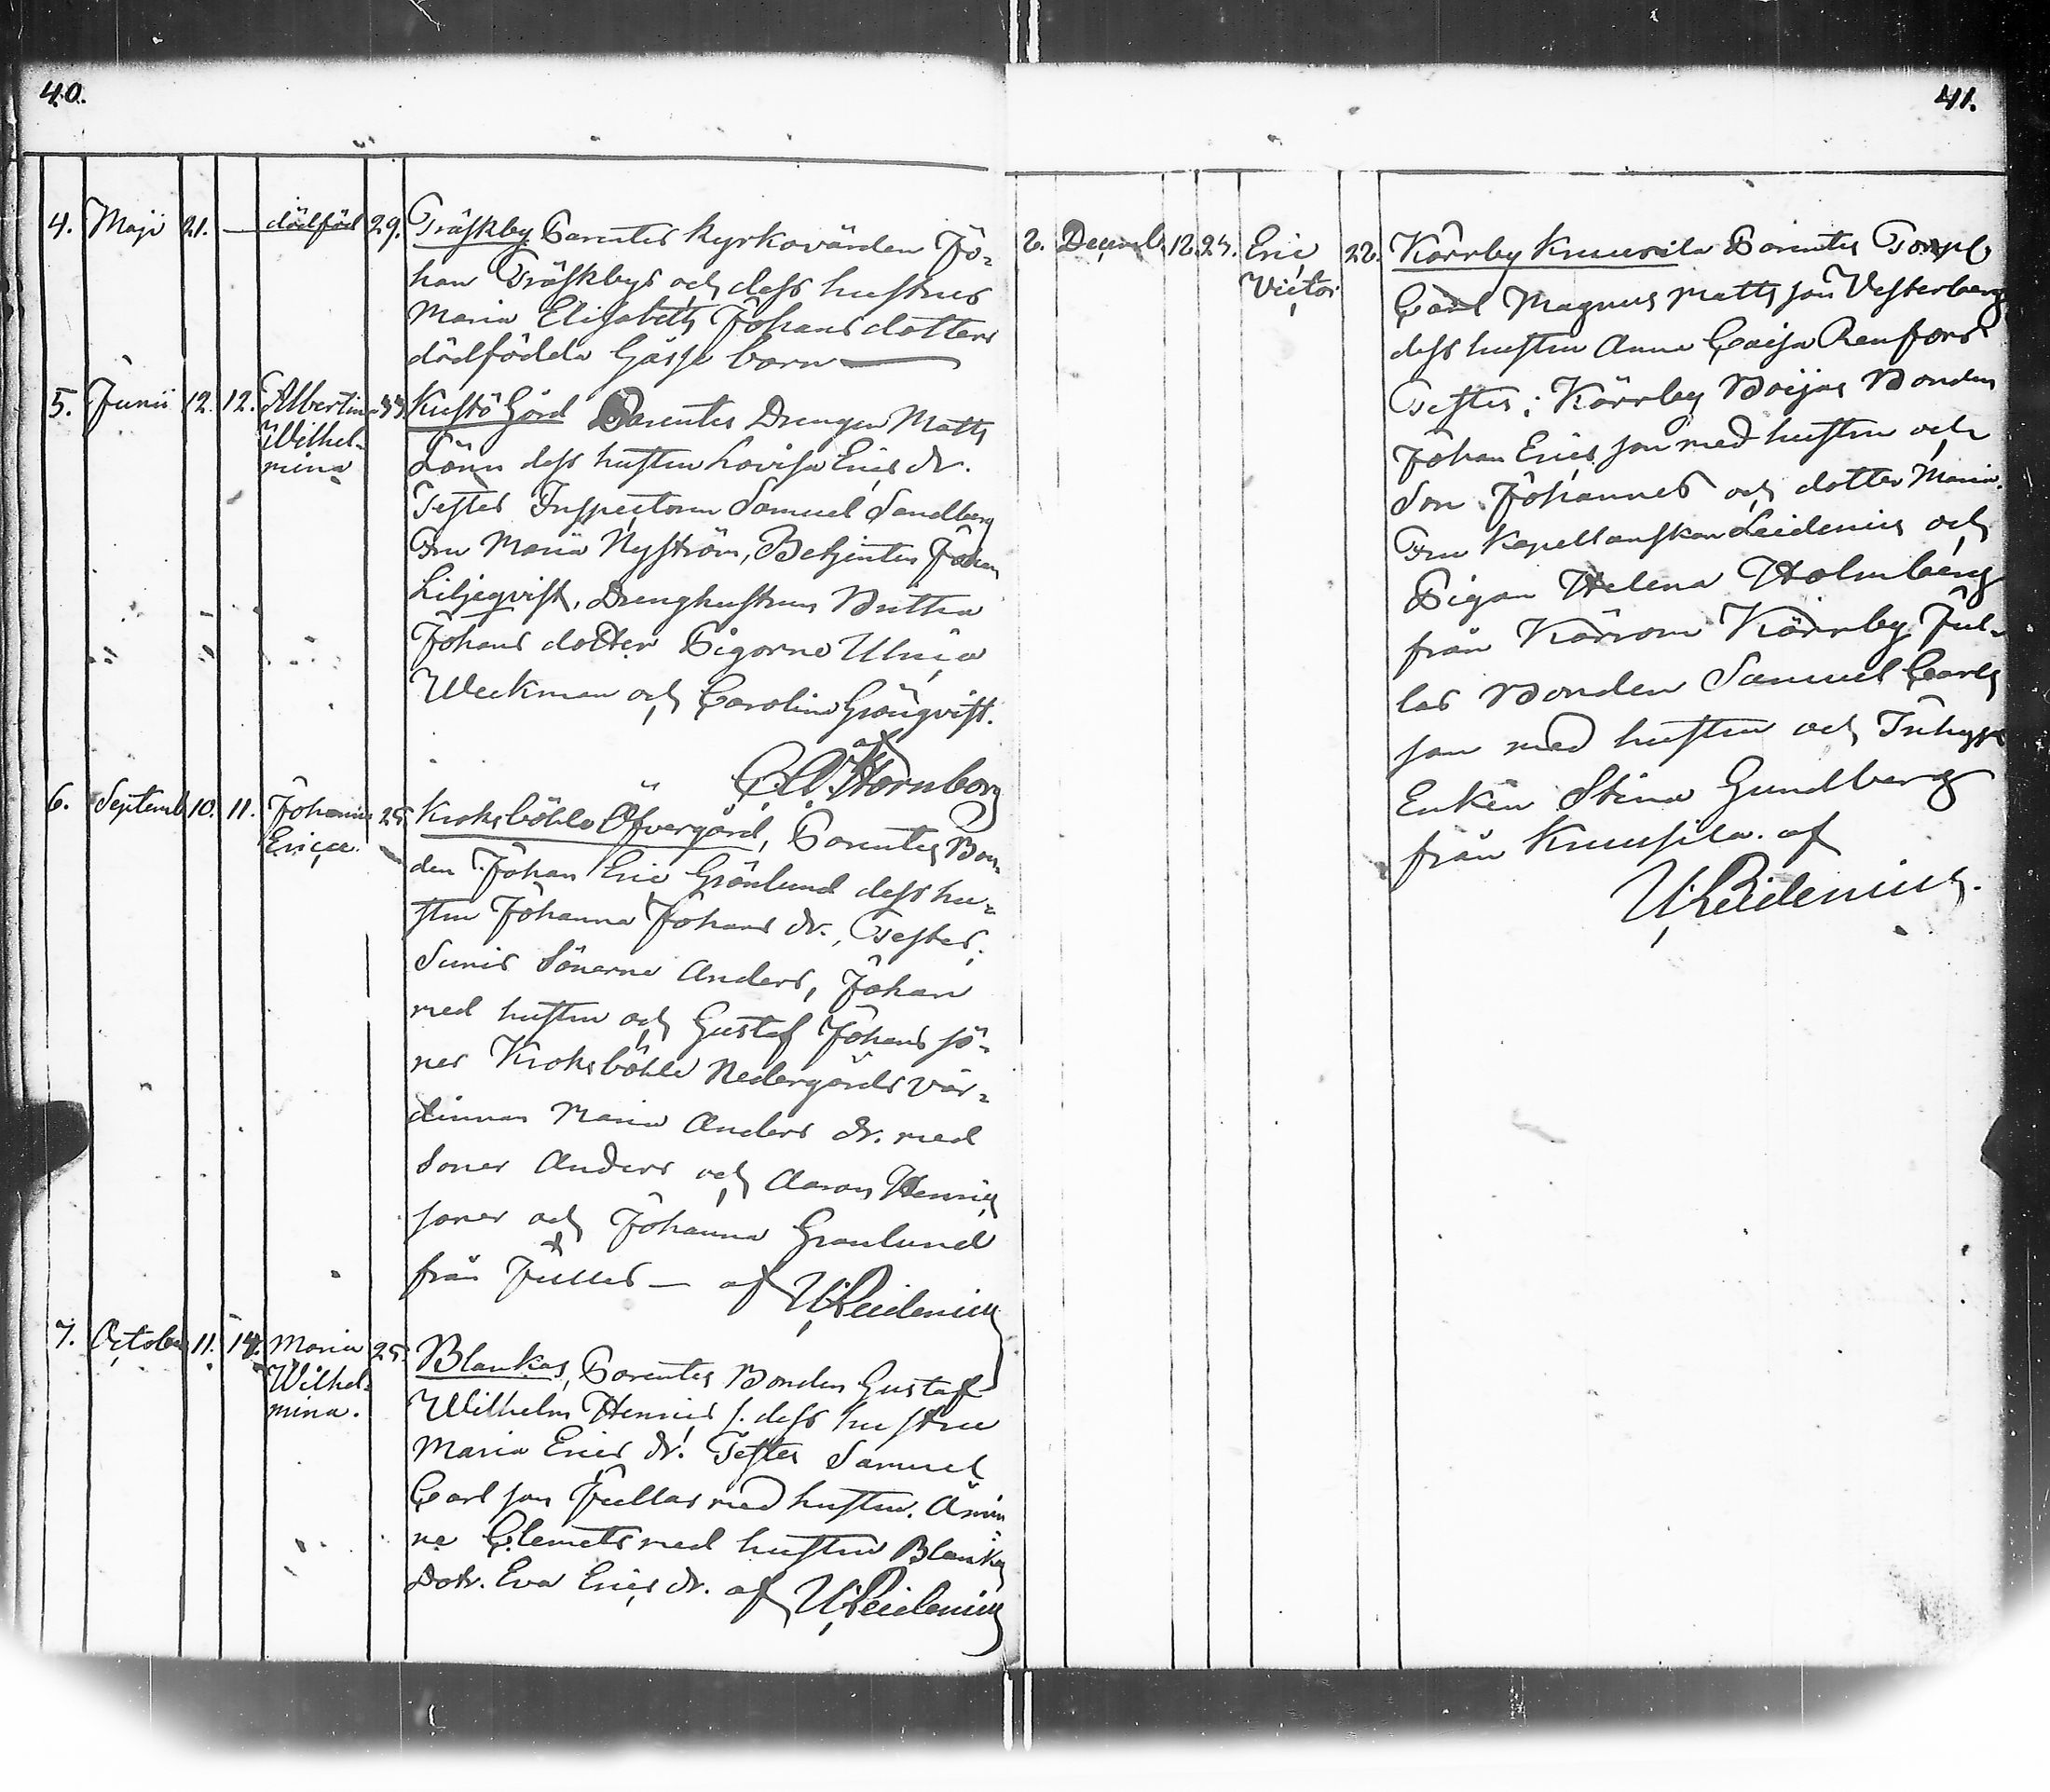 40.
4. Maji 21. — dödfödd 29. Träskby Parentes Kyrkovärden Jo-
han Träskbys och dess hustrus
Maria Elisabeth Johansdotters
dödfödda Gåsse barn —
5. Junii 12. 12. Albertina 33. Kustö Gård Parentes Drengen Matts
Wilhel-
mina
Lönn dess hustru Lovisa Erics dr.
Testes Inspectoren Samuel Sandberg
Fru Maria Nyström, Betjenten Johan
Liljeqvist, Drenghustrun Britha
Johans dotter Pigorne Ulrica
Weckman och Carolina Grönqvist.
af
C. W. Hornborg
6. Septemb 10. 11. Johanna 25. Kroksböhle Öfvergård, Parentes Bon-
Erica
den Johan Eric Grönlund dess hu-
stru Johanna Johans dr., Testes;
Sunis Sönerne Anders, Johan
med hustru och Gustaf Johans sö-
ner Kroksböhle Nedergårds vär-
dinnan Maria Anders dr. med
Soner Anders och Aaron Henrics
soner och Johanna Granlund
från Jullas — af W. Leidenius
7. October 11. 14. Maria 25. Blankas, Parentes Bonden Gustaf
Wilhel-
mina.
Wilhelm Henrics s. dess hustru
Maria Erics dr. Testes Samuel
Carl son Jullas med hustru. Åmin
ne Clemets med hustru Blankas
Dotr. Eva Erics dr. af W. Leidenius
41.
8. Decemb 12. 25. Eric 22. Kärrby Knuusila Parentes Torp
Victor
Carl Magnus Matts son Vesterberg
dess hustru Anna Caisa Renfors
Testes; Kärrby Böijas Bonden
Johan Erics son med hustru och
Son Johannes och dotter Maria.
Fru Kapellanskan Leidenius och
Pigan Helena Holmberg
från Kärrom Kärrby Jul-
las Bonden Samuel Carls
son med hustru och Inhyses
Enkan Stina Gundberg
från Knusila. af
W. Leidenius.